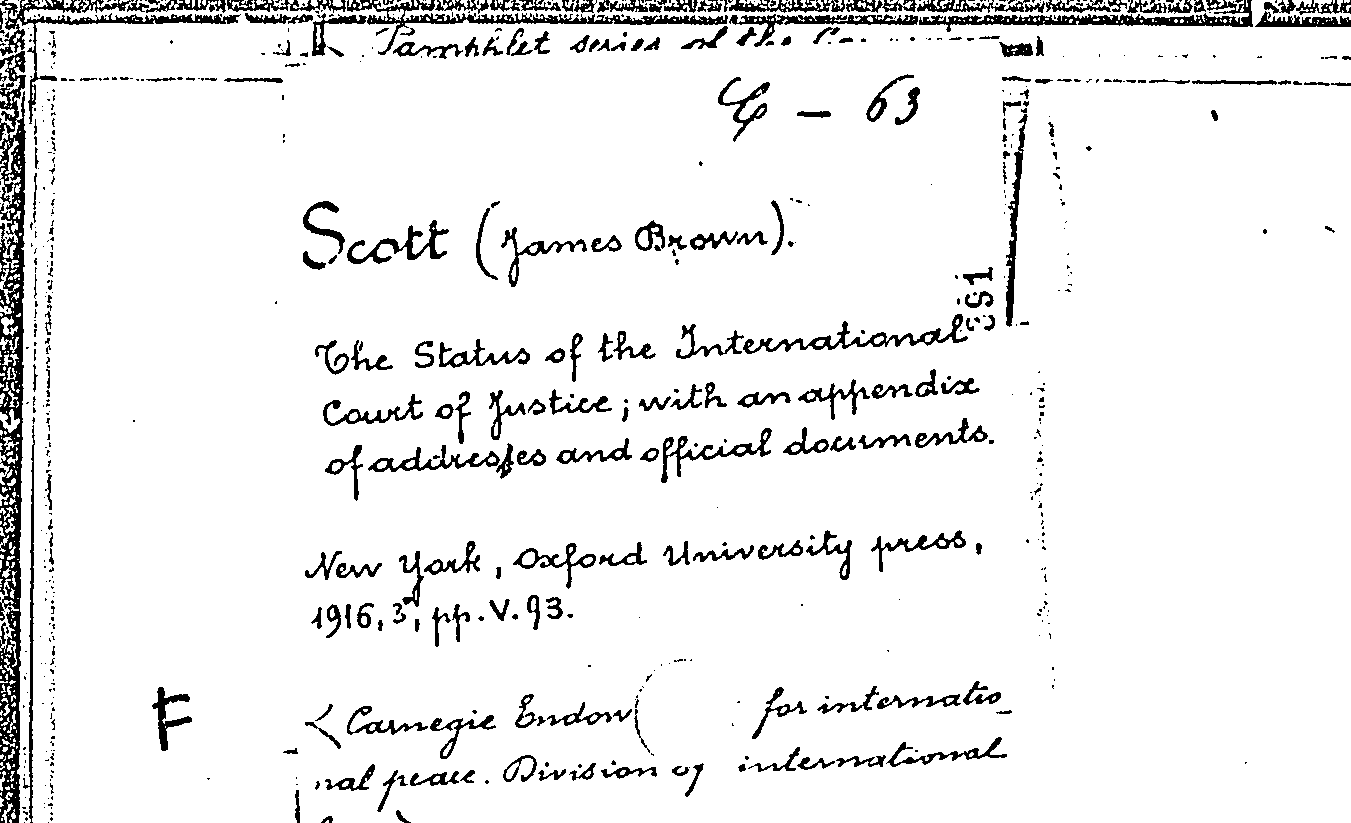 Pamphlet series of the
C — 63
Scott (James Brown).
The Status of the International
Court of Justice; with an appendix
of addresses and official documents.
New York, Oxford University press,
1916, 3°, pp. V. 93.
F
< Carnegie Endow for internatio_
nal peace. Division of international